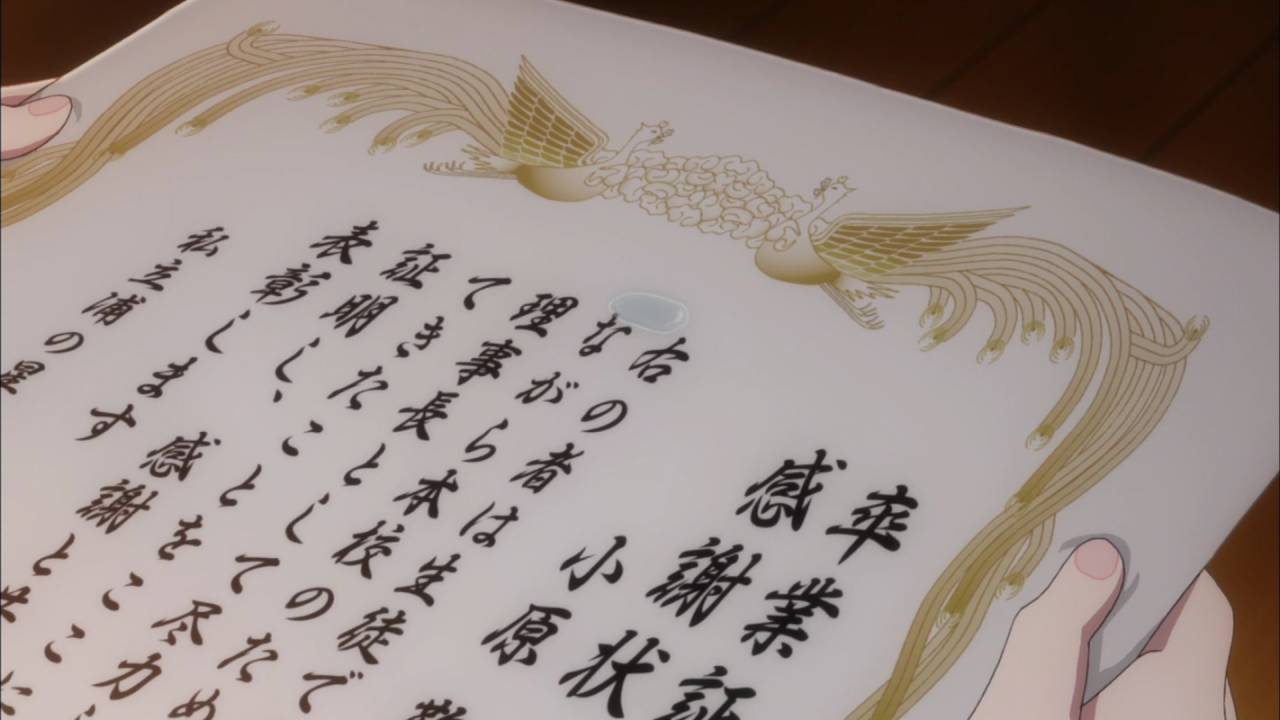 卒業証
感謝状
小原
右の者は生徒で
ながら本校のため
理事長として尽力
てきたことをここ
証明し、感謝と共
表彰します
私立浦の星